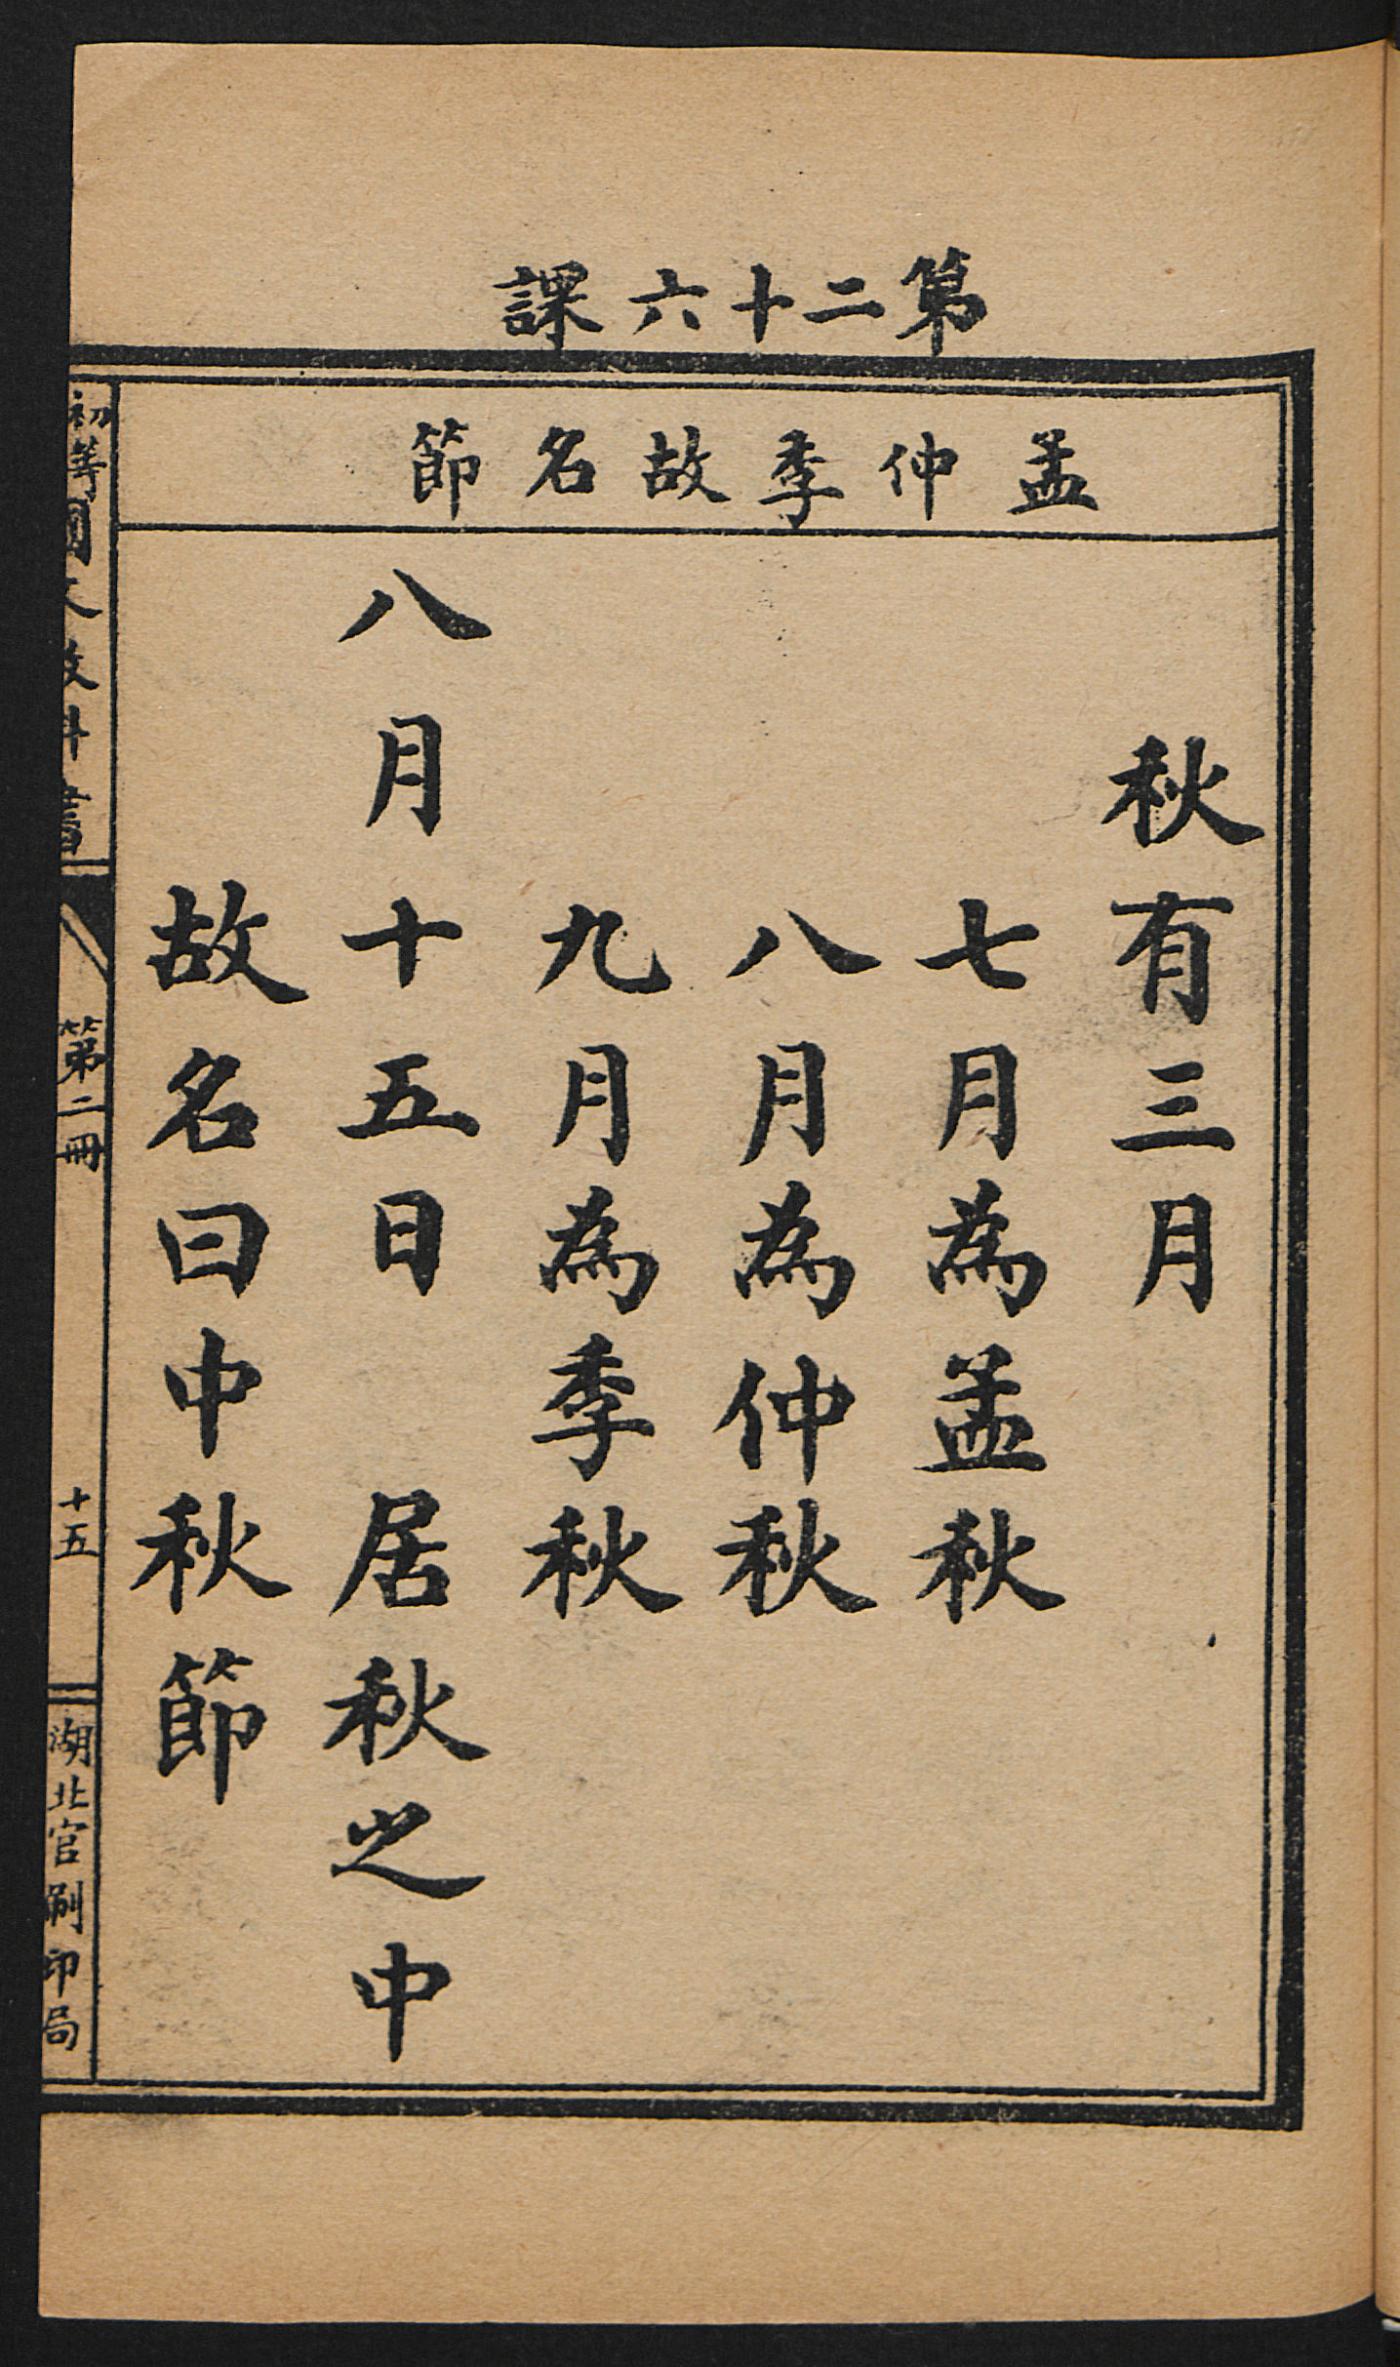 第二十六課
孟仲季故名節
秋有三月
七月為孟秋
八月為仲秋
九月為季秋
八月十五日　居秋之中
故名曰中秋節
初等國文教科書
第二冊
十五
湖北官刷印局